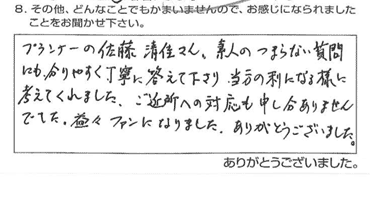 8. その他、どんなことでもかまいませんので、お感じになられました
ことをお聞かせ下さい。
プランナーの佐藤 清佳さん、素人のつまらない質問
にも、分りやすく丁寧に答えて下さり 当方の利になる様に
考えてくれました、ご近所への対応も申し分ありません
でした。益々ファンになりました、ありがとうございました。
ありがとうございました。